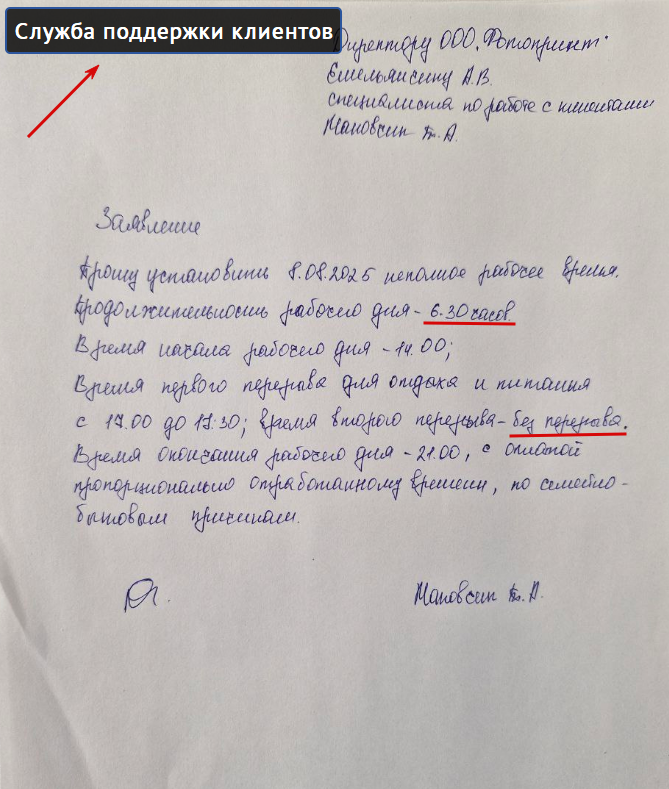 Служба поддержки клиентов
Директору ООО "Фотопринт"
Емельянсину А.В.
специалиста по работе с клиентами
Мановсин Т.А.
Заявление
Прошу установить 8.08.2025 неполное рабочее время.
Продолжительность рабочего дня - 6.30 часов.
Время начала рабочего дня - 14.00;
Время первого перерыва для отдыха и питания
с 17.00 до 17.30; время второго перерыва - без перерыва.
Время окончания рабочего дня - 21.00, с оплатой
пропорционально отработанному времени, по семейно-
бытовым причинам.
Мановсин Т.А.